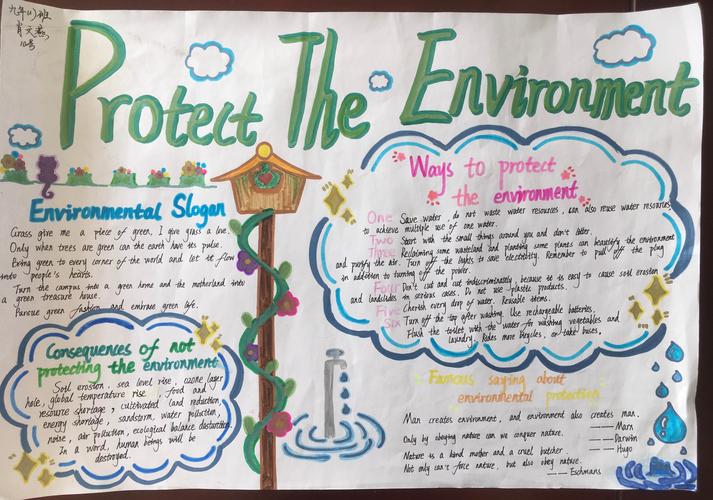 九年(1)班
10号
Protect The Environment
Environmental Slogan
Grass give me a piece of green, I give grass a love.
Only when trees are green can the earth have its pulse.
Bring green to every corner of the world and let it flow
into people's hearts.
Turn the campus into a green home and the motherland into
a green treasure house.
Pursue green fashion and embrace green life.
Consequences of not
protecting the environment
Soil erosion, sea level rise, ozone layer
hole, global temperature rise, food and
resource shortage, cultivated land reduction,
energy shortage, sandstorm, water pollution,
noise, air pollution, ecological balance destruction.
In a word, human beings will be
destroyed.
Ways to protect
the environment
One Save water, do not waste water resources, can also reuse water resources
to achieve multiple use of one water.
Two Start with the small things around you and don't litter.
Three Reclaiming some wasteland and planting some plants can beautify the environment
and purify the air. Turn off the lights to save electricity. Remember to pull off the plug
in addition to turning off the power.
Four Don't cut and cut indiscriminately, because it is easy to cause soil erosion
and landslides in serious cases. Do not use plastic products.
Five Cherish every drop of water. Reusable items.
Six Turn off the tap after washing. Use rechargeable batteries.
Flush the toilet with the water for washing vegetables and
laundry. Rides more bicycles, or take buses.
Famous saying about
environmental protection
Man creates environment, and environment also creates man.
—— Marx
Only by obeying nature can we conquer nature.
—— Darwin
Nature is a kind mother and a cruel butcher.
—— Hugo
Not only can't force nature, but also obey nature.
—— Eschmans